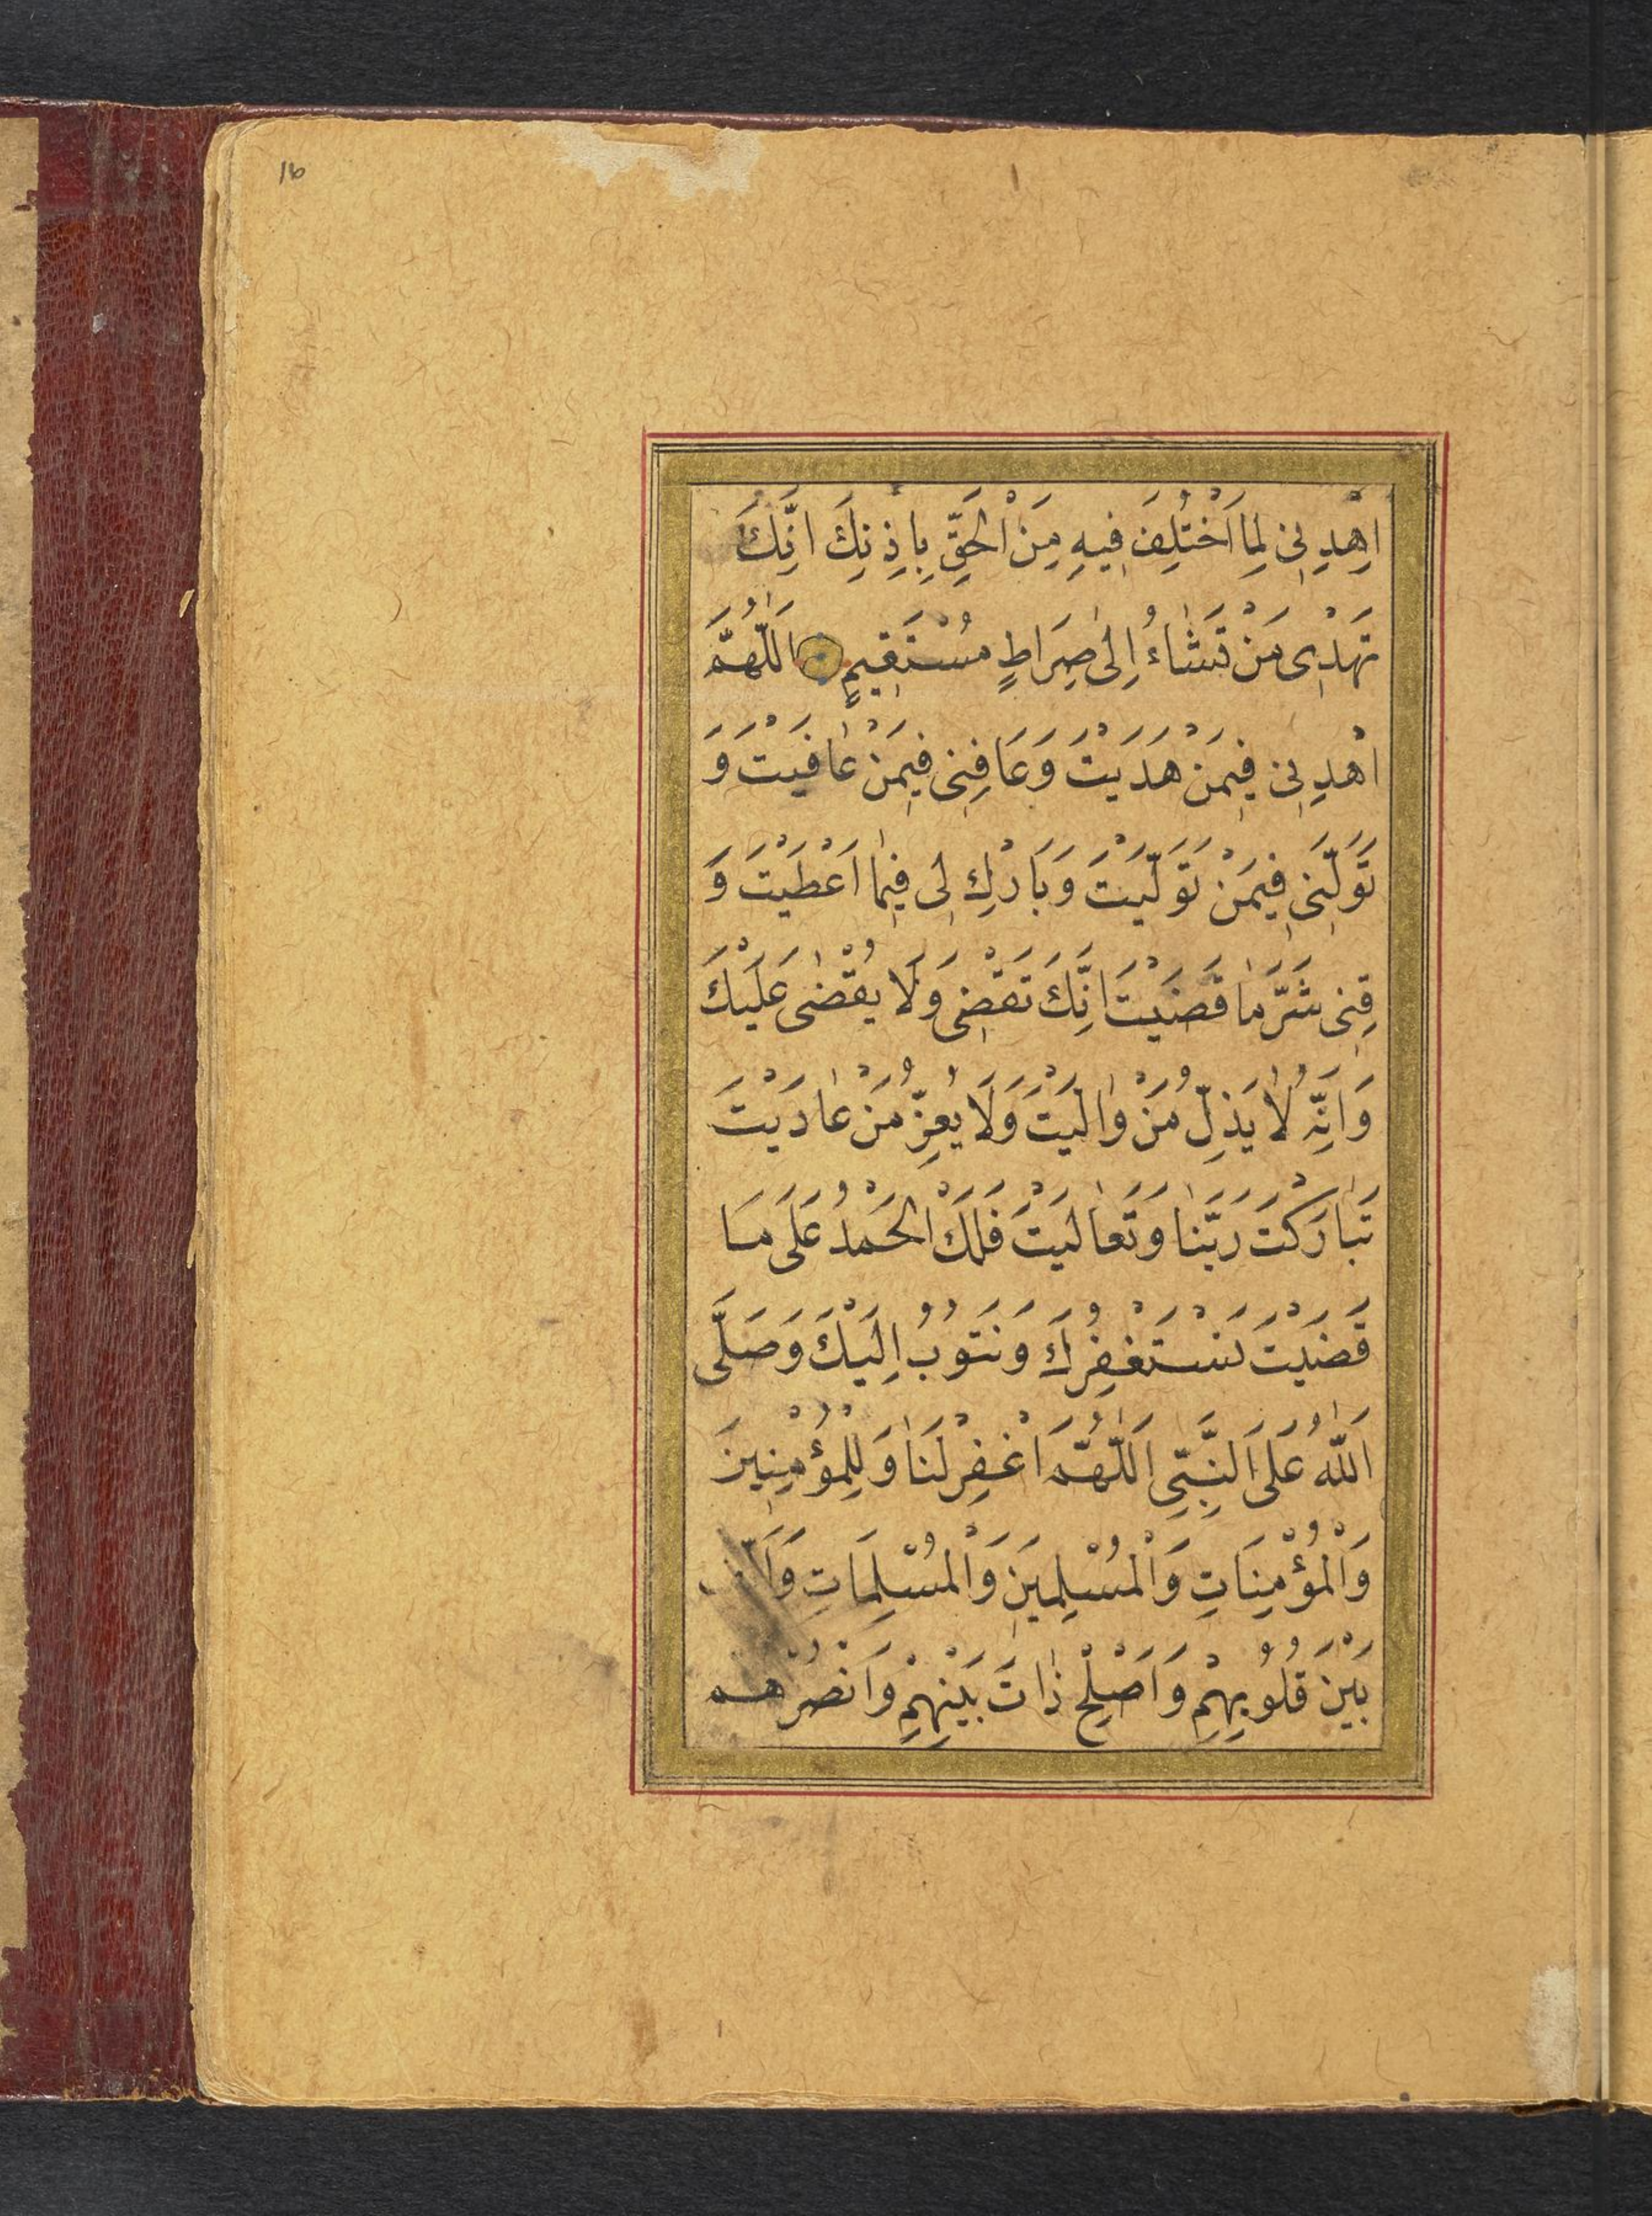 16
اِهْدِنِى لِمَا اَخْتُلِفَ فِيهِ مِنَ الْحَقِّ بِاِذْنِكَ اِنَّكَ
تَهْدِى مَنْ تَشَاءُ اِلٰى صِرَاطٍ مُسْتَقِيمٍ اَللّٰهُمَّ
اهْدِنِى فِيمَنْ هَدَيْتَ وَعَافِنِى فِيمَنْ عَافَيْتَ وَ
تَوَلَّنِى فِيمَنْ تَوَلَّيْتَ وَبَارِكْ لِى فِيمَا اَعْطَيْتَ وَ
قِنِى شَرَّ مَا قَضَيْتَ اِنَّكَ تَقْضِى وَلَا يُقْضٰى عَلَيْكَ
وَاِنَّهُ لَا يَذِلُّ مَنْ وَالَيْتَ وَلَا يَعِزُّ مَنْ عَادَيْتَ
تَبَارَكْتَ رَبَّنَا وَتَعَالَيْتَ فَلَكَ الْحَمْدُ عَلَى مَا
قَضَيْتَ نَسْتَغْفِرُكَ وَنَتُوبُ اِلَيْكَ وَصَلَّى
اَللّٰهُ عَلَى النَّبِىِّ اَللّٰهُمَّ اغْفِرْ لَنَا وَلِلْمُؤْمِنِينَ
وَالْمُؤْمِنَاتِ وَالْمُسْلِمِينَ وَالْمُسْلِمَاتِ
بَيْنَ قُلُوبِهِمْ وَاَصْلِحْ ذَاتَ بَيْنِهِمْ وَانْصُرْهُمْ